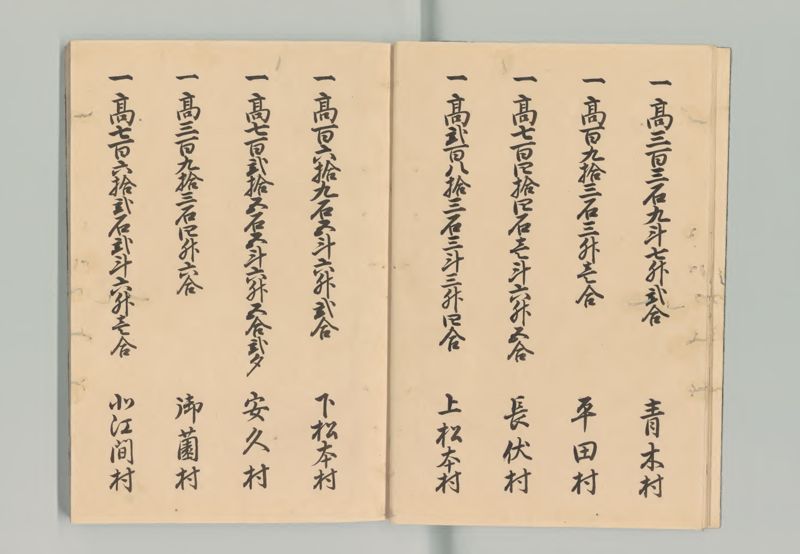 一高三百三石九斗七升弐合 青木村
一高百九拾三石三升壱合 平田村
一高七百四拾四石壱斗六升五合 長伏村
一高弐百八拾三石三斗三升四合 上松本村
一高百六拾九石五斗六升弐合 下松本村
一高七百弐拾五石五斗六升五合弐夕 安久村
一高三百九拾三石四升六合 御薗村
一高七百六拾弐石弐斗六升壱合 北江間村